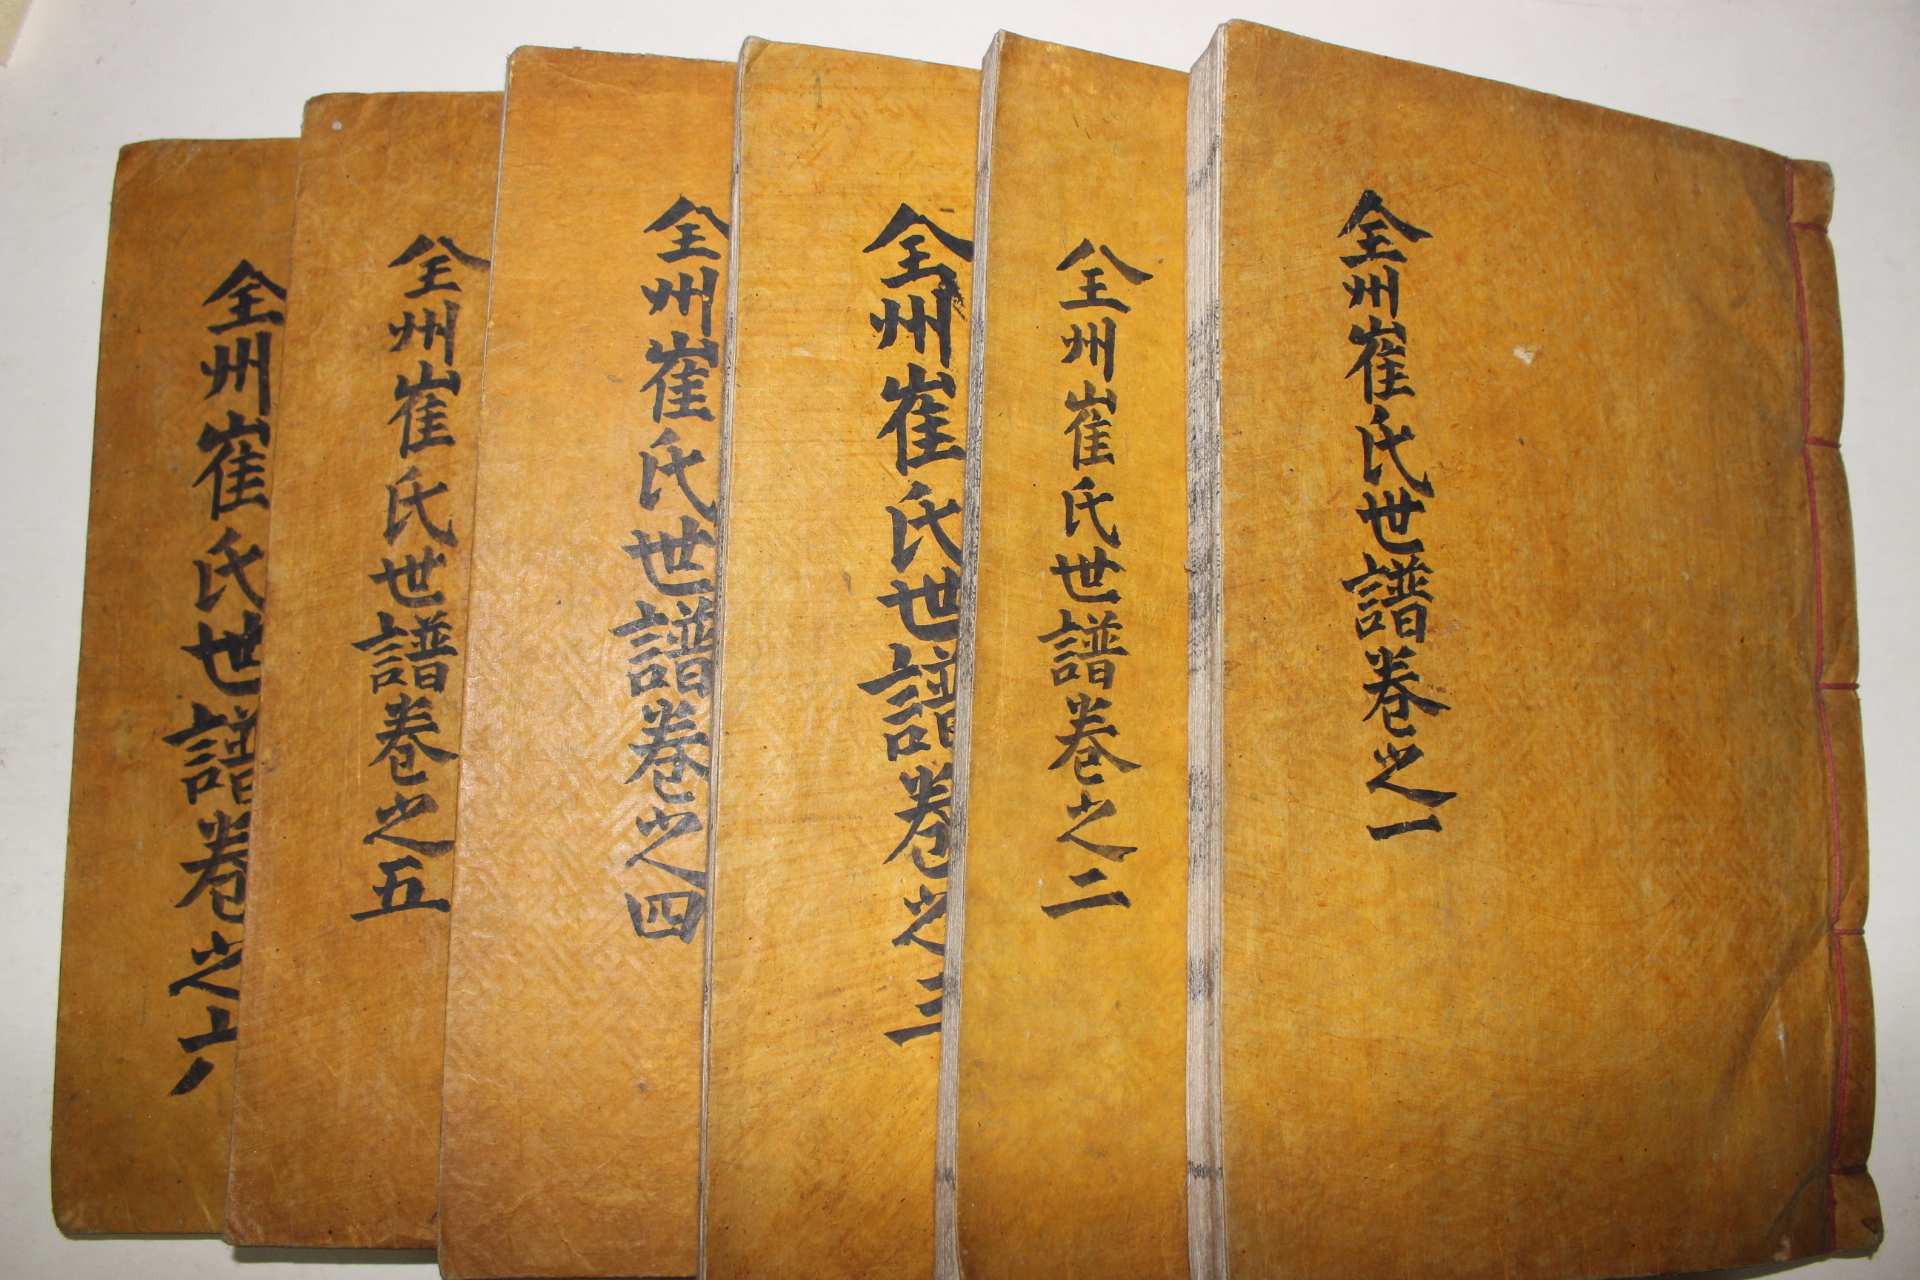 全州崔氏世譜卷之一
全州崔氏世譜卷之二
全州崔氏世譜卷之三
全州崔氏世譜卷之四
全州崔氏世譜卷之五
全州崔氏世譜卷之六